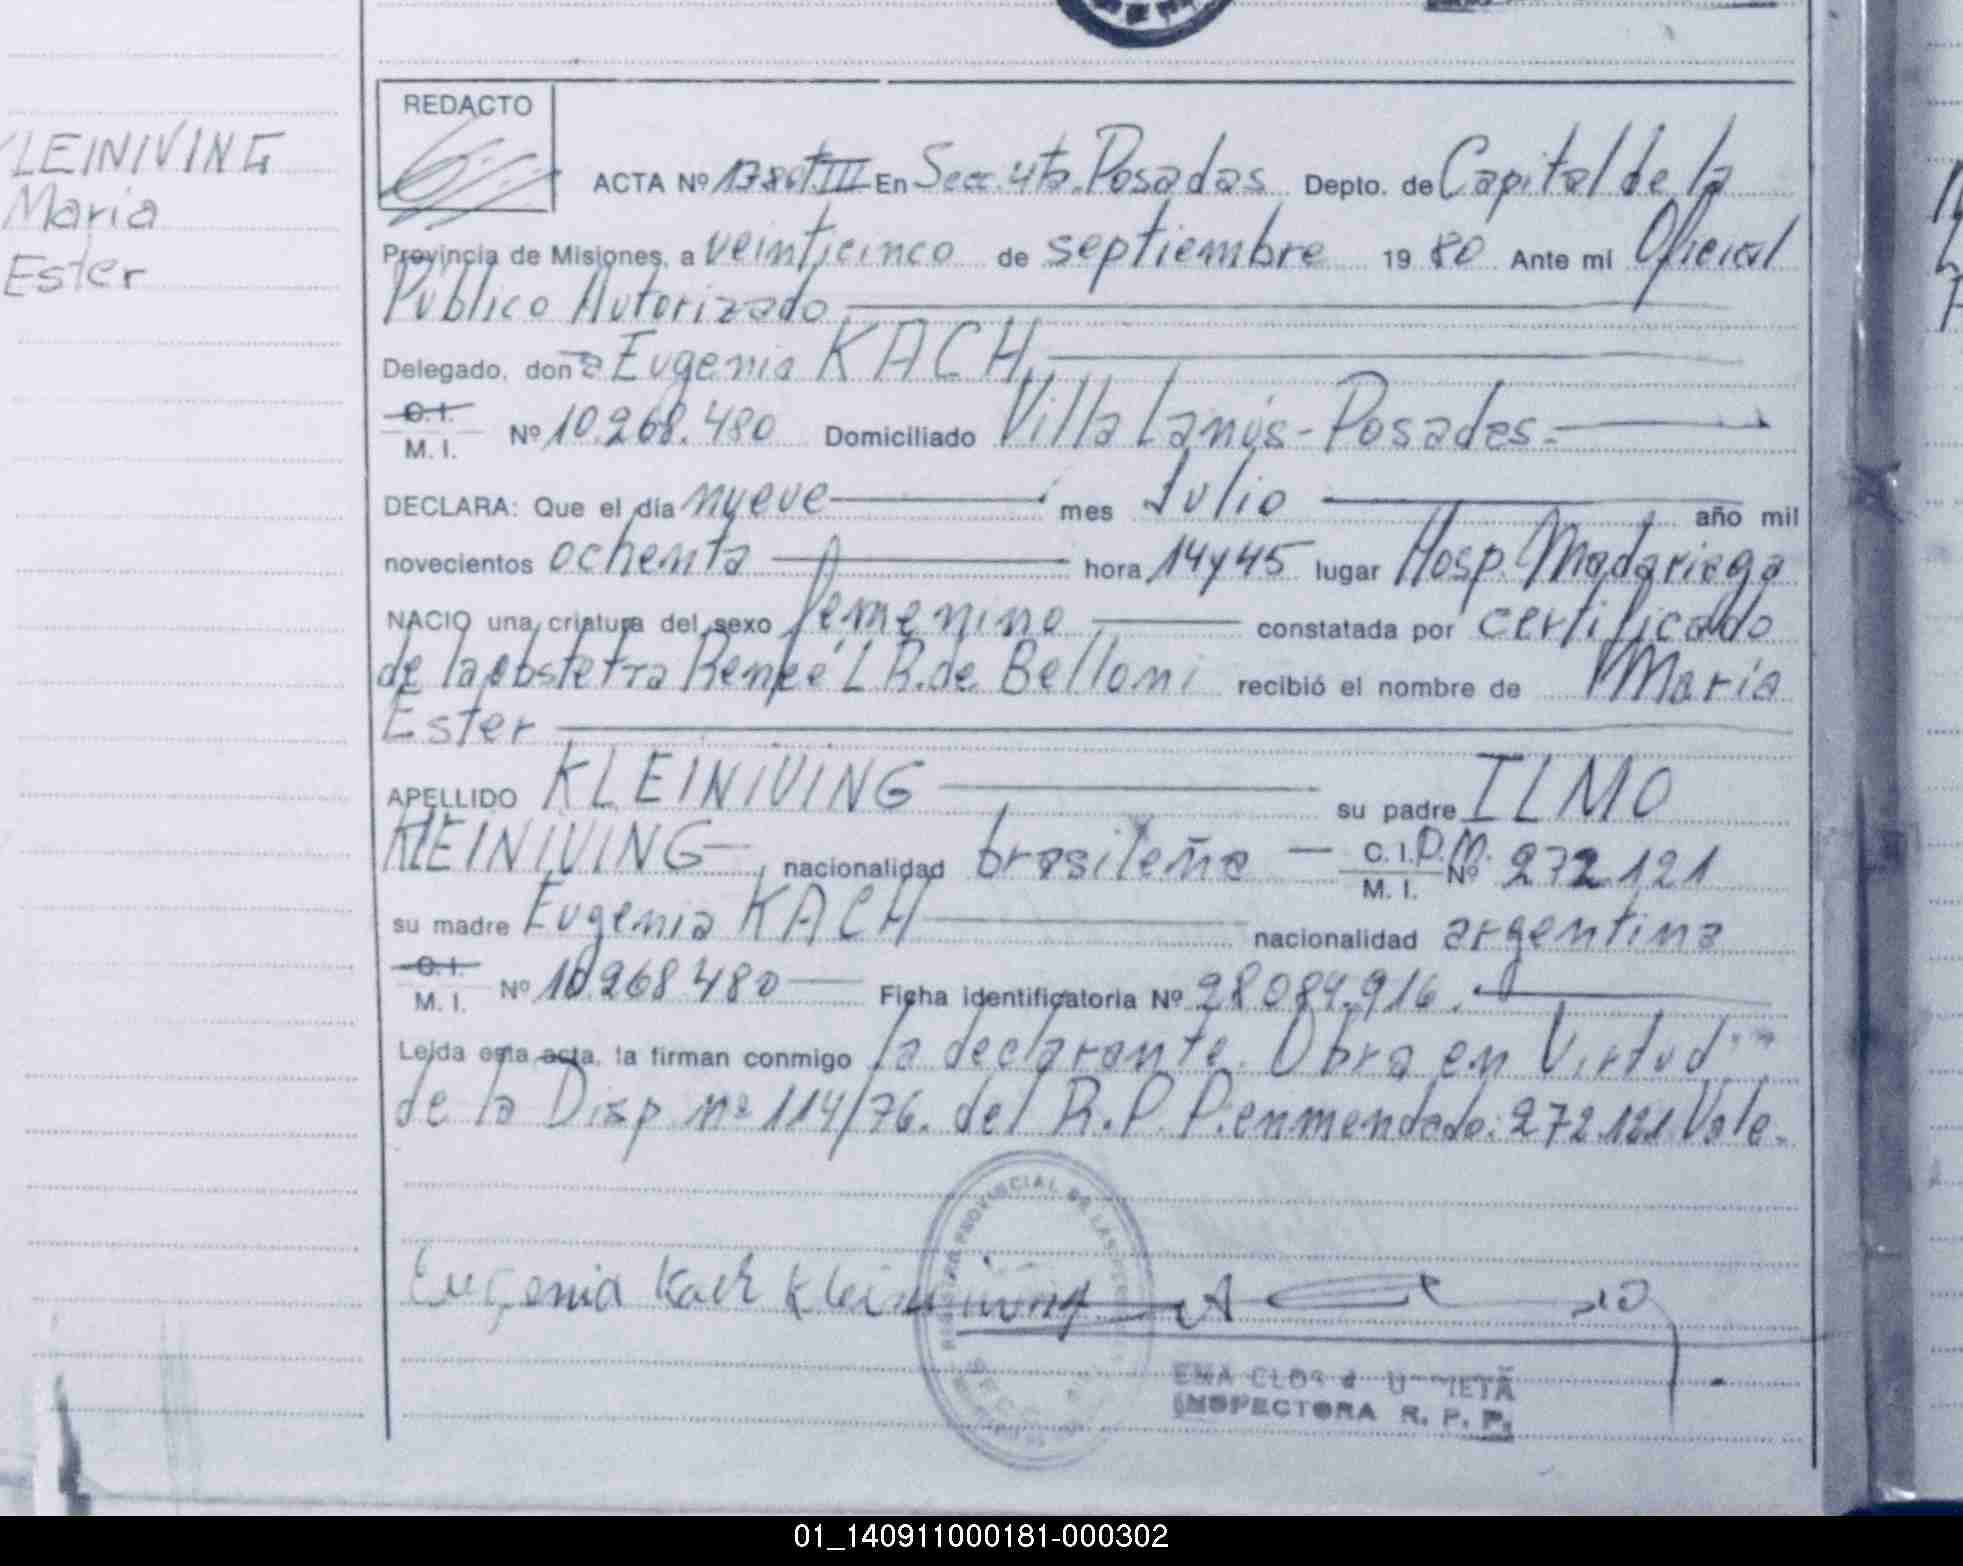 KLEINIVING
Maria
Ester
REDACTO
ACTA Nº 1380 tIII En Secc. 4ta. Posadas Depto. de Capital de la
Provincia de Misiones, a veinticinco de septiembre 19 80 Ante mi Oficial
Público Autorizado
Delegado, don a Eugenia KACH
C. I.
M. I. Nº 10.268.480 Domiciliado Villa Lanús - Posadas.
DECLARA: Que el día nueve mes Julio año mil
novecientos ochenta hora 14 y 45 lugar Hosp. Madariaga
NACIO una criatura del sexo femenino constatada por certificado
de la obstetra Reneé L R. de Belloni recibió el nombre de María
Ester
APELLIDO KLEINIVING su padre ILMO
KLEINIVING nacionalidad brasileña C. I. D.M.
M. I. Nº 272.121
su madre Eugenia KACH nacionalidad argentina
C. I.
M. I. Nº 10.268.480 Ficha identificatoria Nº 28.084.916.
Leída esta acta, la firman conmigo la declarante. Obra en Virtud
de la Disp. nº 114/76. del R.P.P. enmendado: 272.121 Vale.
Eugenia Kach Kleiniving
PROVINCIAL DE LAS
INSPECTORA R. P. P.
01_140911000181-000302